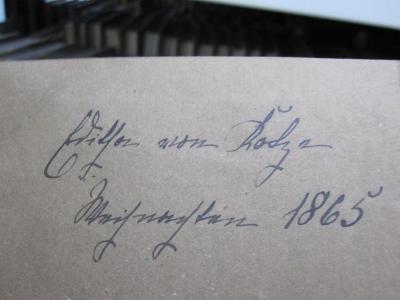 Editha von Kotze
z.
Weihnachten 1865